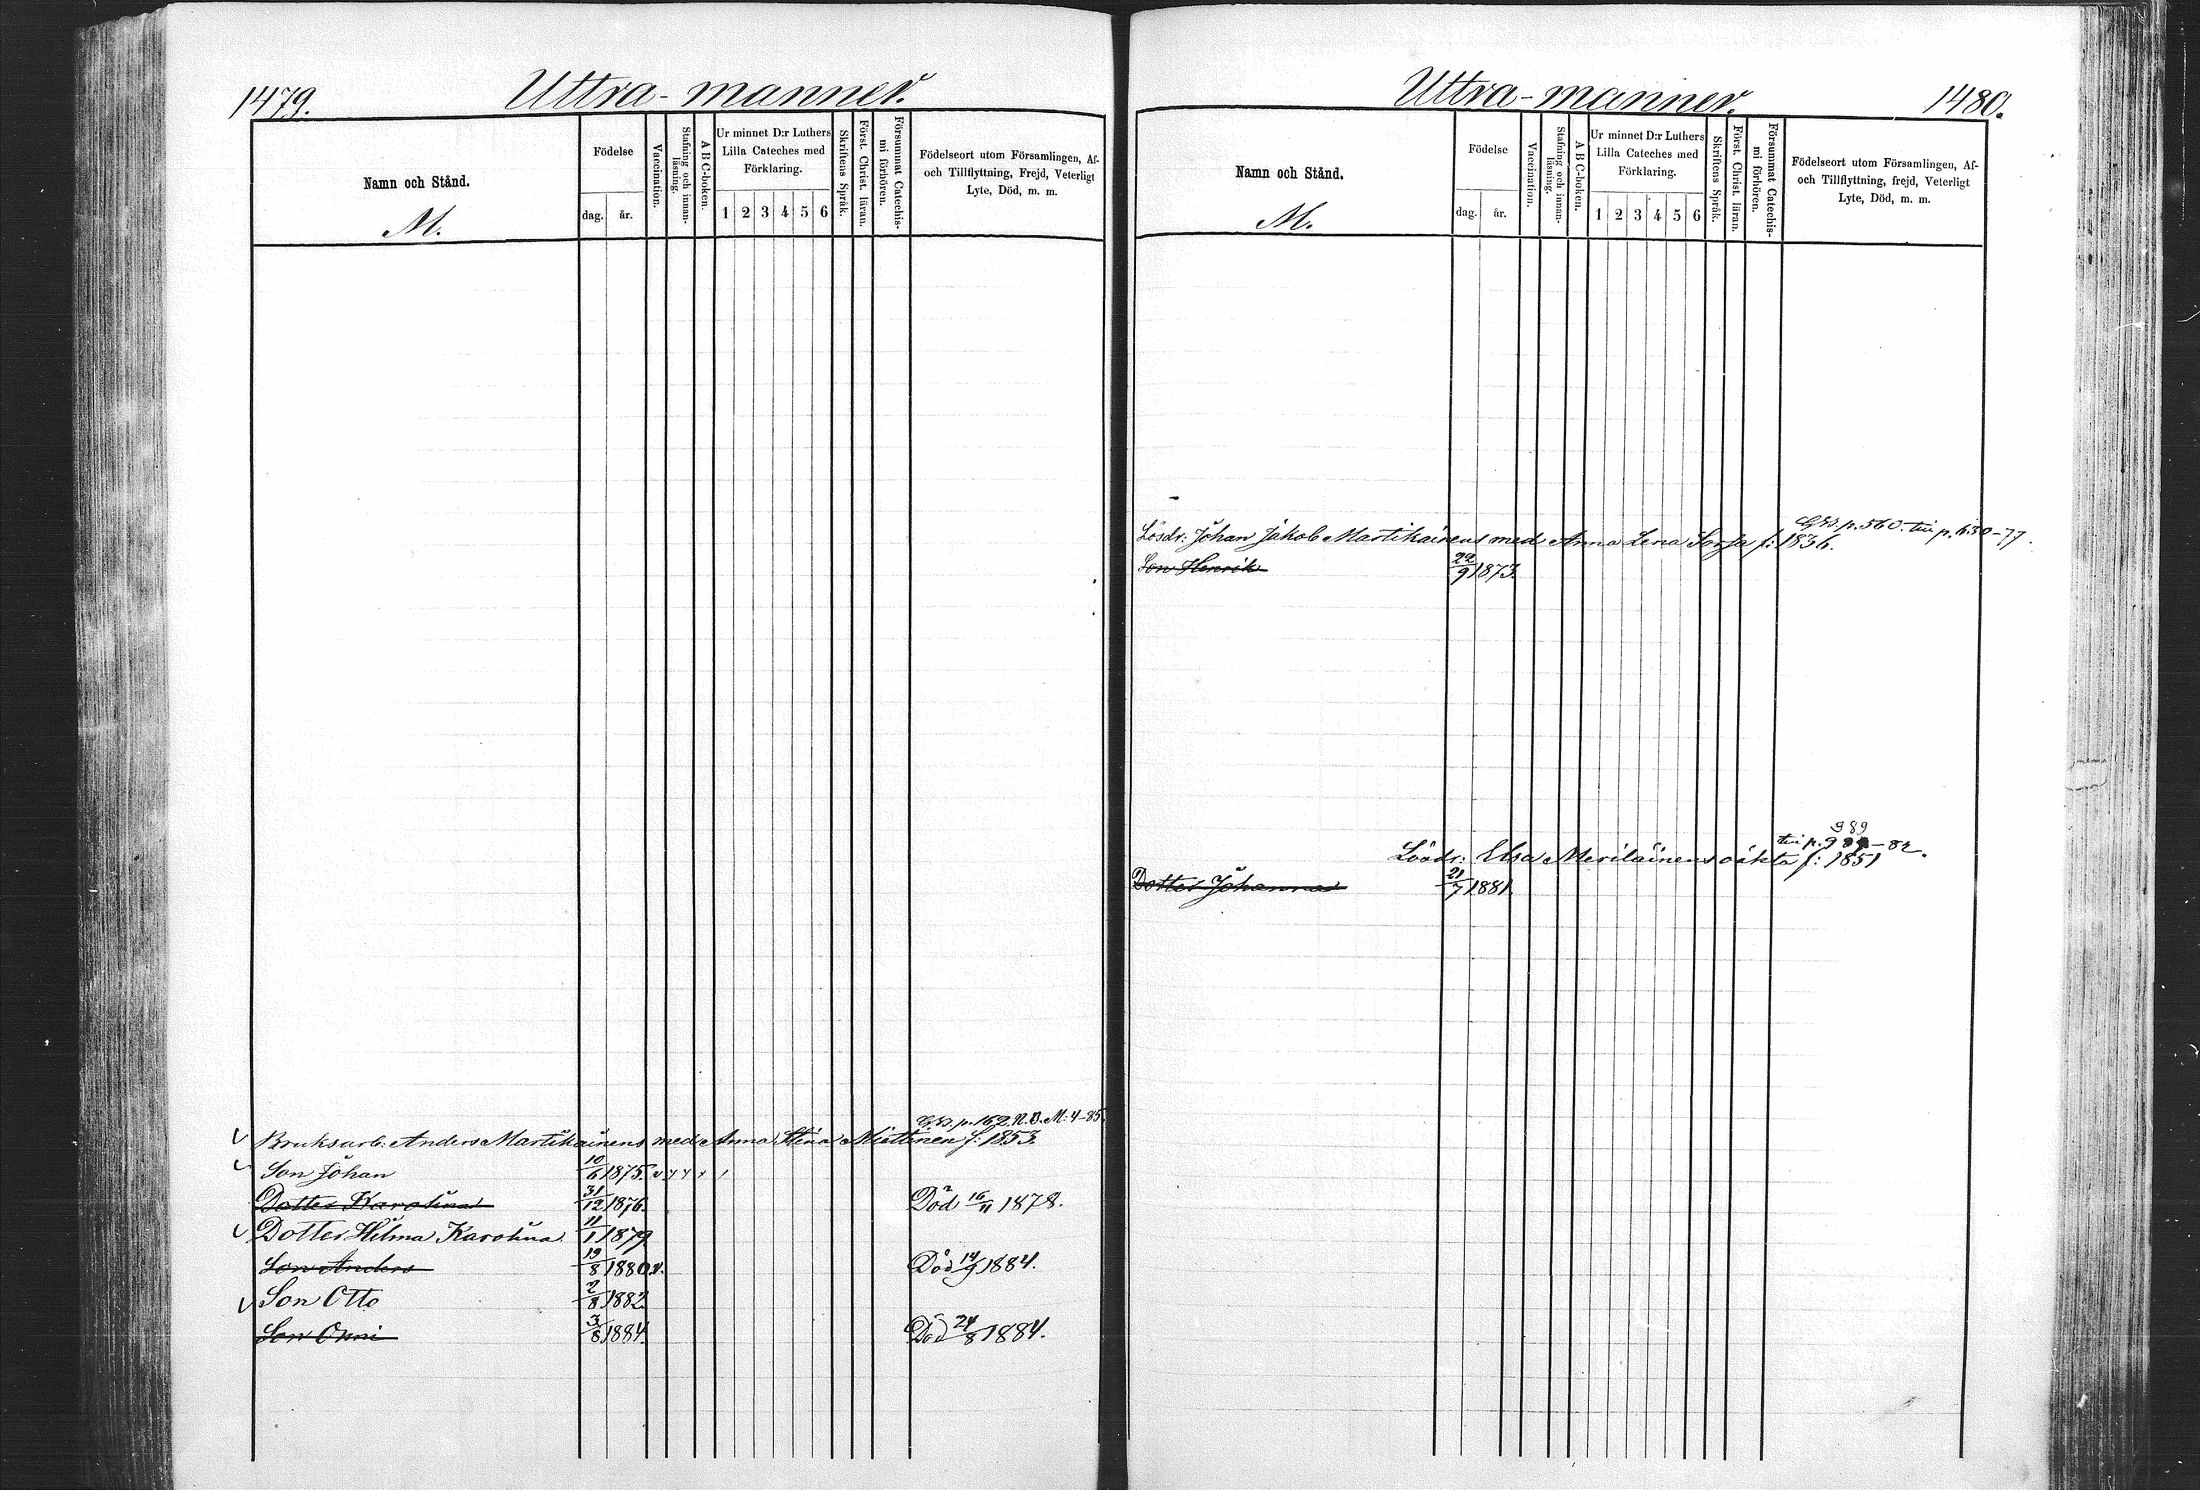 1479. Uttra-manner.
Namn och Stånd.
M.
Födelse
dag. år.
Vaccination.
Stafning och innanläsning.
A B C-boken.
Ur minnet D:r Luthers
Lilla Cateches med
Förklaring.
1 2 3 4 5 6
Skriftens Språk.
Först. Christ. läran.
Försummat Catechismi förhören.
Födelseort utom Församlingen, Af-
och Tillflyttning, Frejd, Veterligt
Lyte, Död, m. m.
p. 162 N. B. M: 4-85.
Bruksarb: Anders Martikainens med Anna Stina Miettinen f: 1853.
Son Johan 10/6 1875.
Dotter Karolina 31/12 1876. Död 16/11 1878.
Dotter Hilma Karolina 11/1 1879
Son Anders 19/8 1880 v. Död 14/9 1884.
Son Otto 2/8 1882.
Son Onni 3/8 1884. Död 24/8 1884.
Uttra-manner. 1480.
Namn och Stånd.
M.
Födelse
dag. år.
Vaccination.
Stafning och innanläsning.
A B C-boken.
Ur minnet D:r Luthers
Lilla Cateches med
Förklaring.
1 2 3 4 5 6
Skriftens Språk.
Först. Christ. läran.
Försummat Catechismi förhören.
Födelseort utom Församlingen, Af-
och Tillflyttning, frejd, Veterligt
Lyte, Död, m. m.
p. 560. p. 630-77.
Lösdr: Johan Jakob Martikainens med Anna Lena Sorsa f: 1836.
Son Henrik 22/9 1873.
989
-82.
Lösdr: Elsa Meriläinens oäkta f: 1851
Dotter Johanna 21/7 1881.